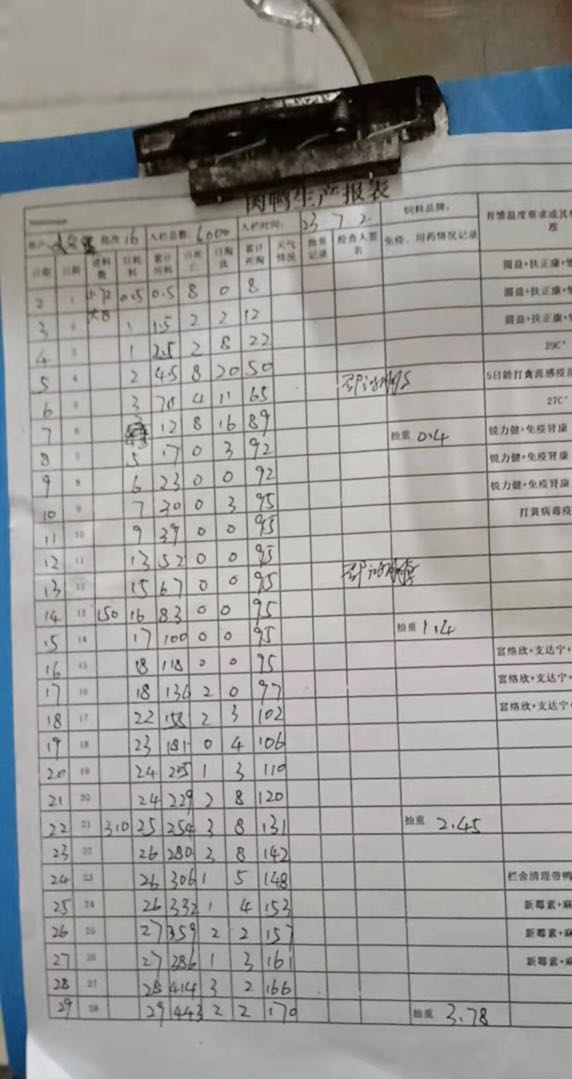 肉鸭生产报表
批次 16 入栏总数: 6000 入栏时间: 23.7.2 饲料品牌:
日期 日龄 进料数 日耗料 累计用料 日死亡 日淘汰 累计死淘 天气情况 抽重记录 检查人签名 免疫、用药情况记录 育雏温度要求或其他
2 1 0.5 0.5 8 0 8 圆益+扶正康+
3 2 1 1.5 2 2 12 圆益+扶正康+
4 3 1 2.5 2 8 22 圆益+扶正康+
5 4 2 4.5 8 20 50 29C°
6 5 3 4 11 65 5日龄打禽流感疫苗
7 6 12 8 16 89 27C°
8 7 5 17 0 3 92 抽重 0.4 锐力健+免疫肾康
9 8 6 23 0 0 92 锐力健+免疫肾康
10 9 7 30 0 3 95 锐力健+免疫肾康
11 10 9 39 0 0 95 打黄病毒疫
12 11 13 52 0 0 95
13 12 15 67 0 0 95
14 13 150 16 83 0 0 95
15 14 17 100 0 0 95 抽重 1.4
16 15 18 118 0 0 95 富络欣+支达宁+
17 16 18 136 2 0 97 富络欣+支达宁+
18 17 22 158 2 3 102 富络欣+支达宁+
19 18 23 181 0 4 106
20 19 24 205 1 3 110
21 20 24 229 2 8 120
22 21 310 25 254 3 8 131 抽重 2.45
23 22 26 280 3 8 142
24 23 26 306 1 5 148 栏舍清理带鸭
25 24 26 332 1 4 153 新霉素+麻
26 25 27 359 2 2 157 新霉素+麻
27 26 27 286 1 3 161 新霉素+麻
28 27 28 414 3 2 166
29 28 29 443 2 2 170 抽重 3.78